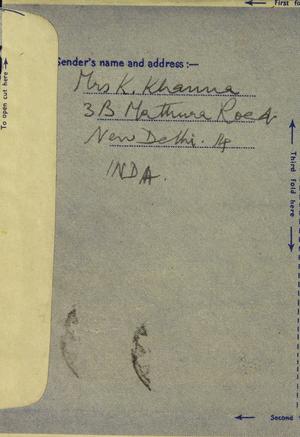 First fo
To open cut here
Sender's name and address :—
Mrs K. Khanna
3B Mathura Road
New Delhi. 14
INDIA.
Third fold here
Second